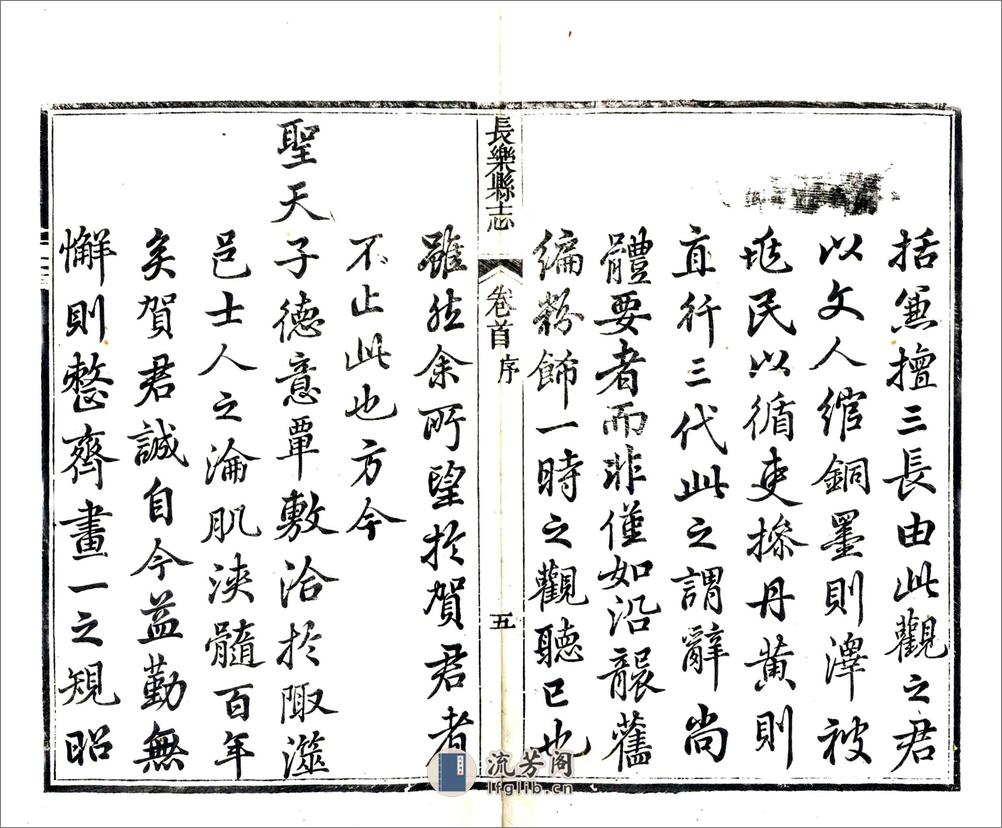 括兼擅三長由此觀之君
以文人綰銅墨則澤被
垗民以循吏操丹黄則
直行三代此之謂辭尚
體要者而非僅如沿襲舊
編粉飾一時之觀聽已也
長樂縣志
卷首
序
五
雖然余所望於賀君者
不止此也方今
聖天子德意覃敷洽於陬澨
邑士人之淪肌浹髓百年
矣賀君誠自今益勤無
懈則整齊畫一之規昭
流芳阁
lfglib.cn